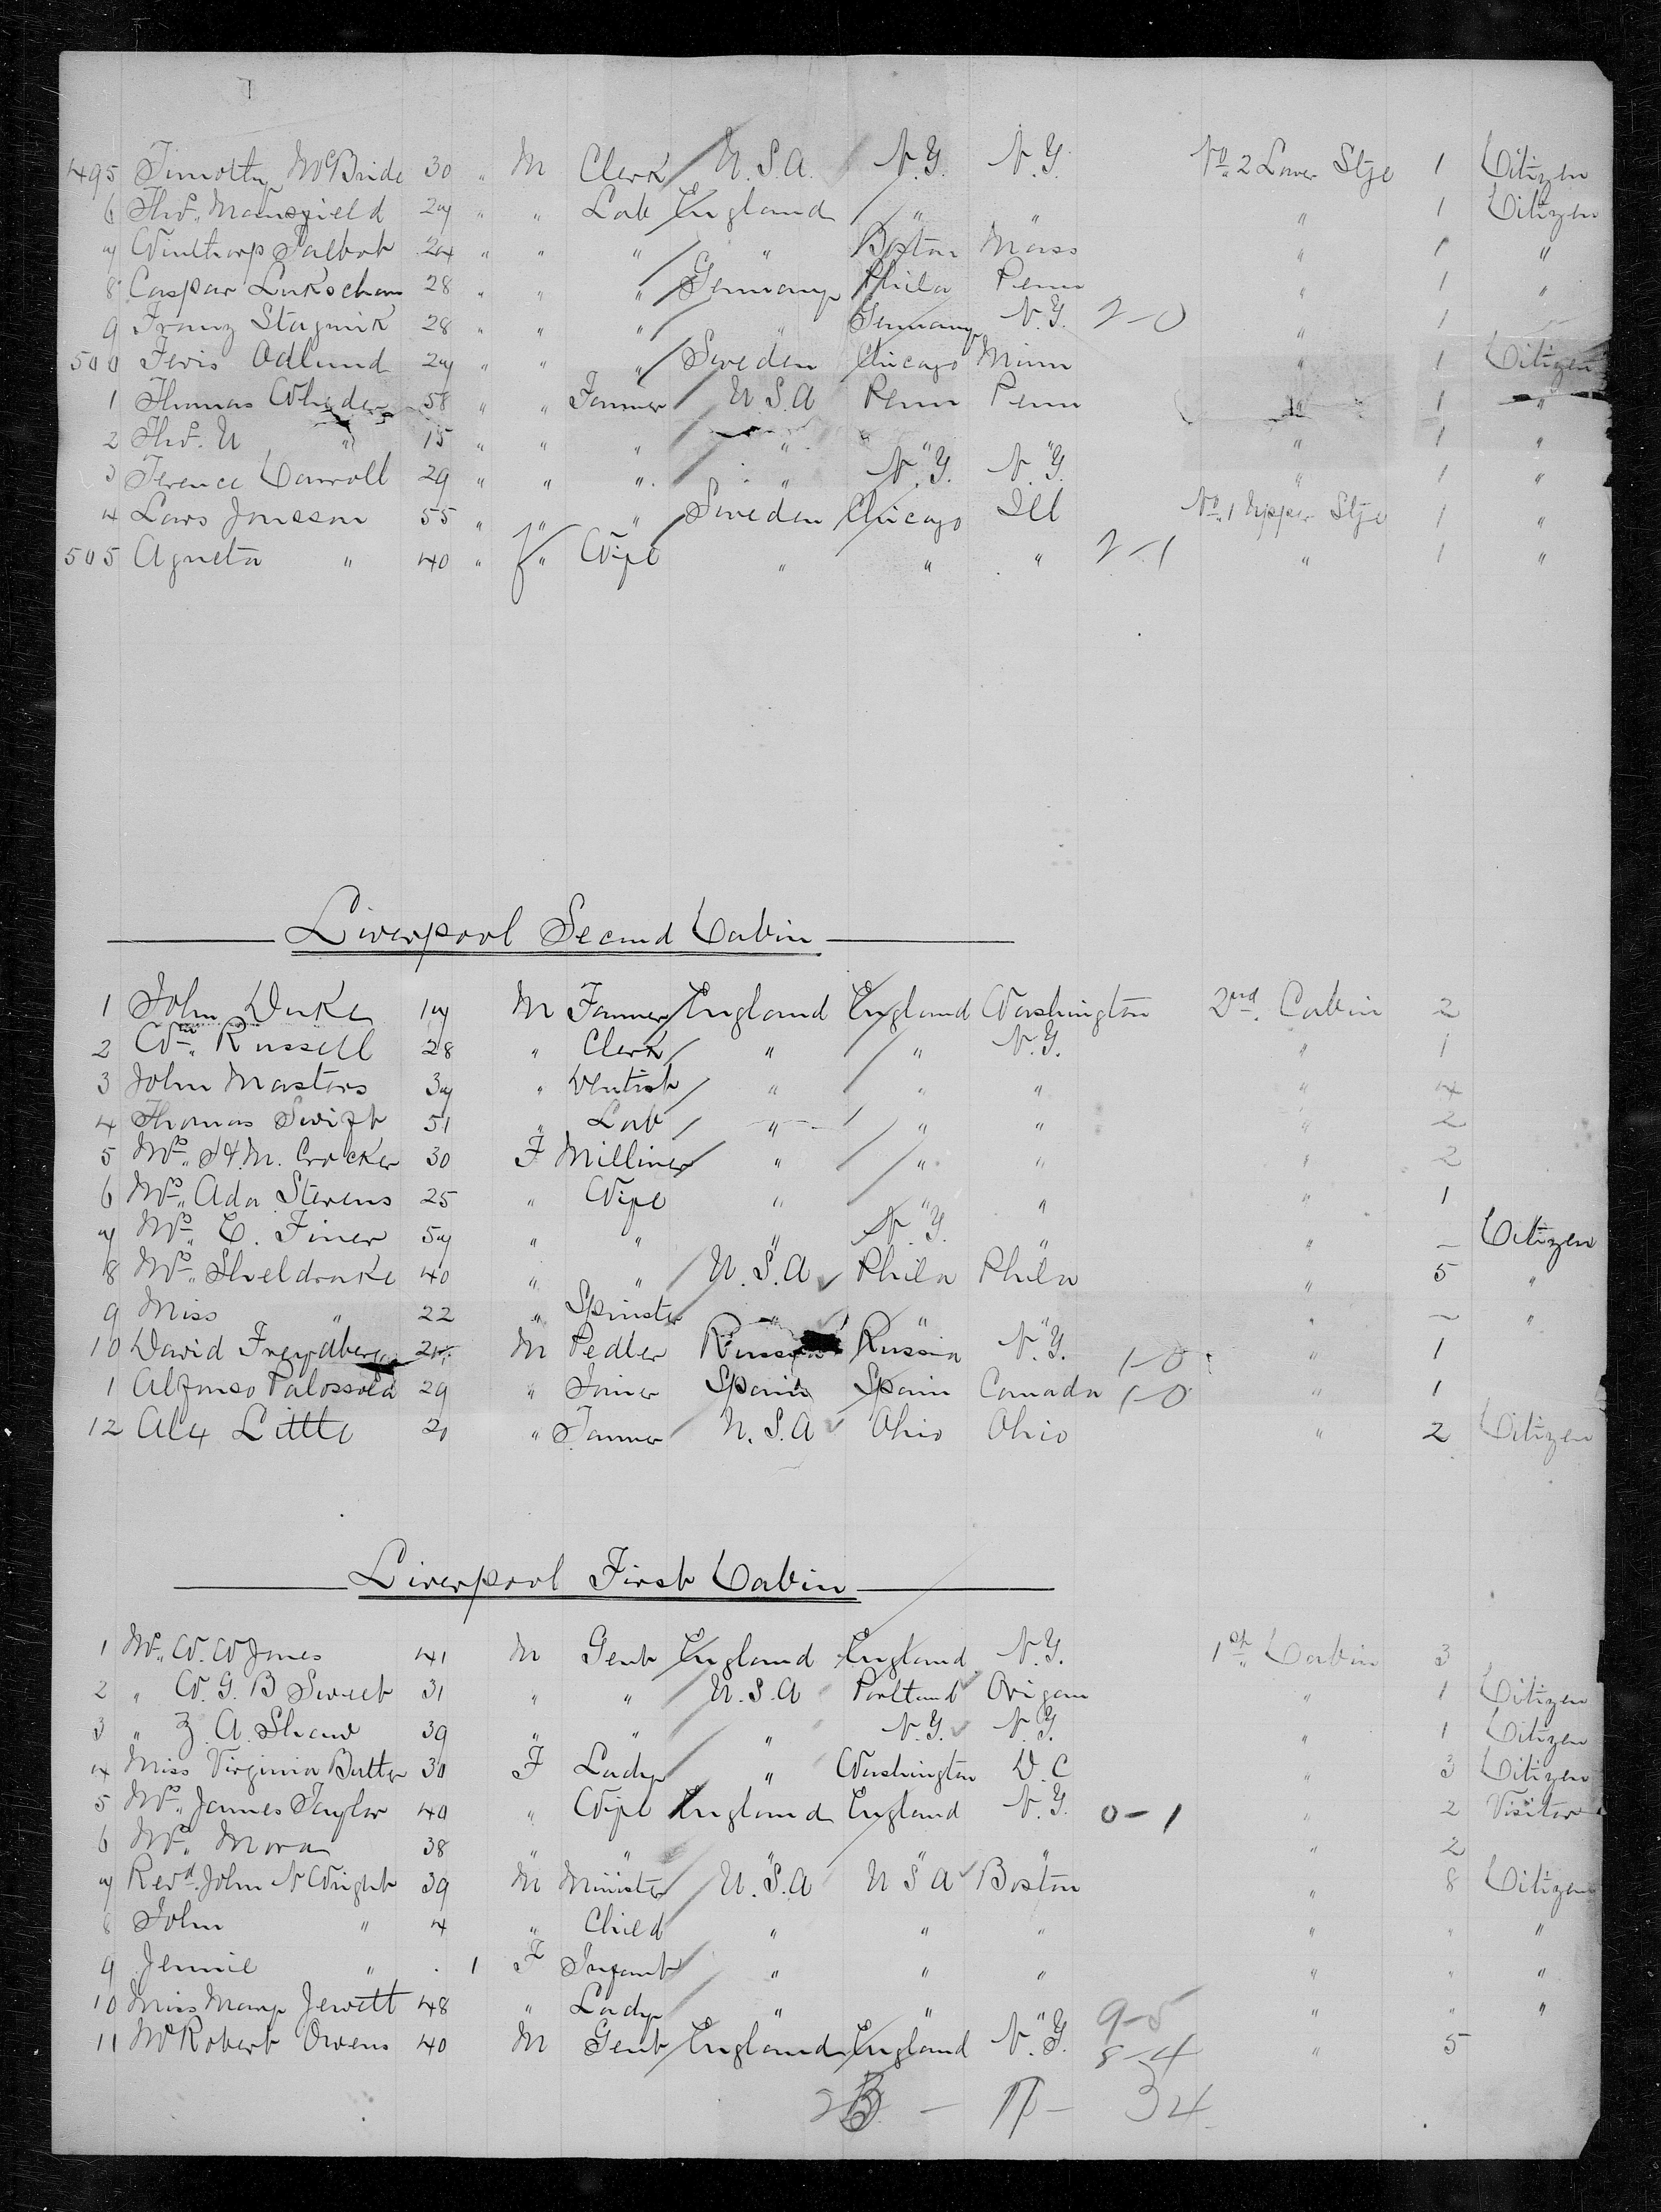 495 Timothy McBride 30 " M Clerk U.S.A. N.Y. N.Y. No 2 Lower Stge 1 Citizen
6 Thos. Mansfield 27 " " Lab England " " " 1 Citizen
7 Winthorp Talbot 24 " " " " Boston Mass " 1 "
8 Caspar Lukschan 28 " " " Germany Phila Penn " 1 "
9 Franz Stagmik 28 " " " " Germany N.Y. 2-0 " 1
500 Odlund 27 " " " Sweden Chicago Minn " 1 Citizen
1 Thomas 58 " " Farmer U.S.A Penn Penn " 1 "
2 Thos. U " 15 " " " " " " " 1 "
3 Terence Carroll 29 " " " " N.Y. N.Y. " 1 "
4 Lars Jonsson 55 " " " Sweden Chicago Ill No 1 Upper Stge 1 "
505 Agneta " 40 " f " Wife " " " 2-1 " 1 "
Liverpool Second Cabin
1 John Duke 17 M Farmer England England Washington 2nd. Cabin 2
2 Wm. Russell 28 " Clerk " " N.Y. " 1
3 John Masters 37 " Dentist " " " " 4
4 Thomas Swift 51 " Lab " " " " 2
5 Mrs. H.M. Crocker 30 F Milliner " " " " 2
6 Mrs. Ada Stevens 25 " Wife " " " " 1
7 Mrs. C. Finer 57 " " " N.Y. " " - Citizen
8 Mrs. Sheldrake 40 " " U.S.A Phila Phila " 5 "
9 Miss " 22 " Spinster " " " " - "
10 David Freydberg M Pedler Russia Russia N.Y. 1-0 " 1
1 Alfonso Palossola 29 " Joiner Spain Spain Canada 1-0 " 1
12 Alex Little 20 " Farmer U.S.A Ohio Ohio " 2 Citizen
Liverpool First Cabin
1 Mr. W. W Jones 41 M Gent England England N.Y. 1st. Cabin 3
2 " W. G. B Sweet 31 " " U.S.A Portland Origan " 1 Citizen
3 " Z. A. Shaw 39 " " " N.Y. N.Y. " 1 Citizen
4 Miss Virginia Butler 30 F Lady " Washington D.C " 3 Citizen
5 Mrs. James Taylor 40 " Wife England England N.Y. 0-1 " 2 Visitor
6 Mrs. Mora 38 " " " " " " 2
7 Revd. John N Wright 39 M Minister U.S.A U S A Boston " 8 Citizen
8 John " 4 " Child " " " " " "
9 Jennie " 1 F Infant " " " " " "
10 Miss Mary Jewett 48 " Lady " " " 9-5 " " "
11 Mr Robert Owens 40 M Gent England England N.Y. 8-4 " 5
34